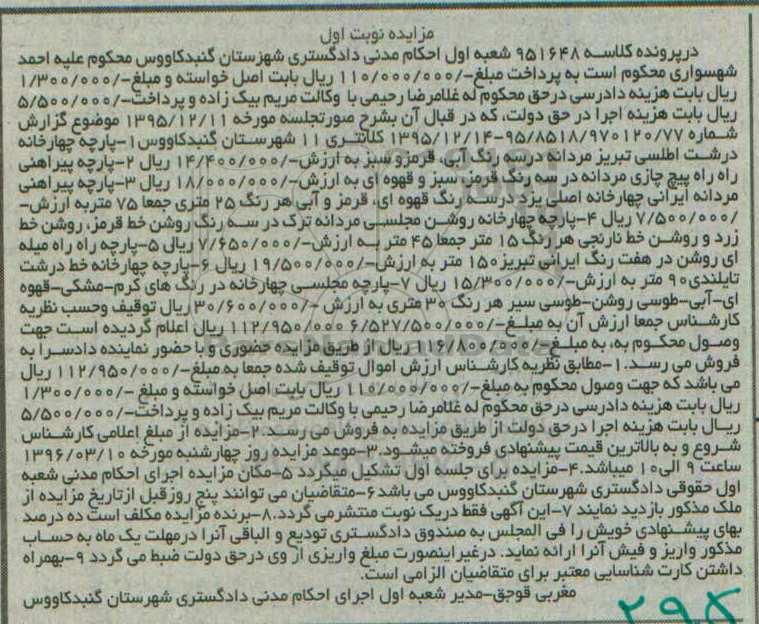 مزایده نوبت اول
درپرونده کلاسه ۹۵۱۶۴۸ شعبه اول احکام مدنی دادگستری شهرستان گنبدکاووس محکوم علیه احمد
شهسواری محکوم است به پرداخت مبلغ-/۱۱۰/۰۰۰/۰۰۰ ریال بابت اصل خواسته و مبلغ-/۱/۳۰۰/۰۰۰
ریال بابت هزینه دادرسی درحق محکوم له غلامرضا رحیمی با وکالت مریم بیک زاده و پرداخت-/۵/۵۰۰/۰۰۰
ریال بابت هزینه اجرا در حق دولت، که در قبال آن بشرح صورتجلسه مورخه ۱۳۹۵/۱۲/۱۱ موضوع گزارش
شماره ۹۵/۸۵۱۸/۹۷۰۱۲۰/۷۷-۱۳۹۵/۱۲/۱۴ کلانتری ۱۱ شهرستان گنبدکاووس۱-پارچه چهارخانه
درشت اطلسی تبریز مردانه درسه رنگ آبی، قرمزو سبز به ارزش-/۱۴/۴۰۰/۰۰۰ ریال ۲-پارچه پیراهنی
راه راه پیچ جازی مردانه در سه رنگ قرمز، سبز و قهوه ای به ارزش-/۱۸/۰۰۰/۰۰۰ ریال ۳-پارچه پیراهنی
مردانه ایرانی چهارخانه اصلی یزد درسه رنگ قهوه ای، قرمز و آبی هر رنگ ۲۵ متری جمعا ۷۵ متربه ارزش-
/۷/۵۰۰/۰۰۰ ریال ۴-پارچه چهارخانه روشن مجلسی مردانه ترک در سه رنگ روشن خط قرمز، روشن خط
زرد و روشن خط نارنجی هر رنگ ۱۵ متر جمعا ۴۵ متر به ارزش-/۷/۶۵۰/۰۰۰ ریال ۵-پارچه راه راه میله
ای روشن در هفت رنگ ایرانی تبریز۱۵۰ متر به ارزش-/۱۹/۵۰۰/۰۰۰ ریال ۶-پارچه چهارخانه خط درشت
تایلندی۹۰ متر به ارزش-/۱۵/۳۰۰/۰۰۰ ریال ۷-پارچه مجلسی چهارخانه در رنگ های کرم-مشکی-قهوه
ای-آبی-طوسی روشن-طوسی سیر هر رنگ ۳۰ متری به ارزش -/۳۰/۶۰۰/۰۰۰ریال توقیف وحسب نظریه
کارشناس جمعا ارزش آن به مبلغ-/۶/۵۲۷/۵۰۰/۰۰۰ ۱۱۲/۹۵۰/۰۰۰ ریال اعلام گردیده است جهت
وصول محکوم به، به مبلغ-/۱۱۶/۸۰۰/۰۰۰ریال از طریق مزایده حضوری و با حضور نماینده دادسرا به
فروش می رسد.۱-مطابق نظریه کارشناس ارزش اموال توقیف شده جمعا به مبلغ-/۱۱۲/۹۵۰/۰۰۰ ریال
می باشد که جهت وصول محکوم به مبلغ-/۱۱۰/۰۰۰/۰۰۰ ریال بابت اصل خواسته و مبلغ -/۱/۳۰۰/۰۰۰
ریال بابت هزینه دادرسی درحق محکوم له غلامرضا رحیمی با وکالت مریم بیک زاده و پرداخت-/۵/۵۰۰/۰۰۰
ریال بابت هزینه اجرا درحق دولت از طریق مزایده به فروش می رسد.۲-مزایده از مبلغ اعلامی کارشناس
شروع و به بالاترین قیمت پیشنهادی فروخته میشود.۳-موعد مزایده روز چهارشنبه مورخه ۱۳۹۶/۰۳/۱۰
ساعت ۹ الی۱۰ میباشد.۴-مزایده برای جلسه اول تشکیل میگردد ۵-مکان مزایده اجرای احکام مدنی شعبه
اول حقوقی دادگستری شهرستان گنبدکاووس می باشد۶-متقاضیان می توانند پنج روزقبل ازتاریخ مزایده از
ملک مذکور بازدید نمایند ۷-این آگهی فقط دریک نوبت منتشرمی گردد.۸-برنده مزایده مکلف است ده درصد
بهای پیشنهادی خویش را فی المجلس به صندوق دادگستری تودیع و الباقی آنرا درمهلت یک ماه به حساب
مذکور واریز و فیش آنرا ارائه نماید. درغیراینصورت مبلغ واریزی از وی درحق دولت ضبط می گردد ۹-بهمراه
داشتن کارت شناسایی معتبر برای متقاضیان الزامی است.
مغربی قوجق-مدیر شعبه اول اجرای احکام مدنی دادگستری شهرستان گنبدکاووس